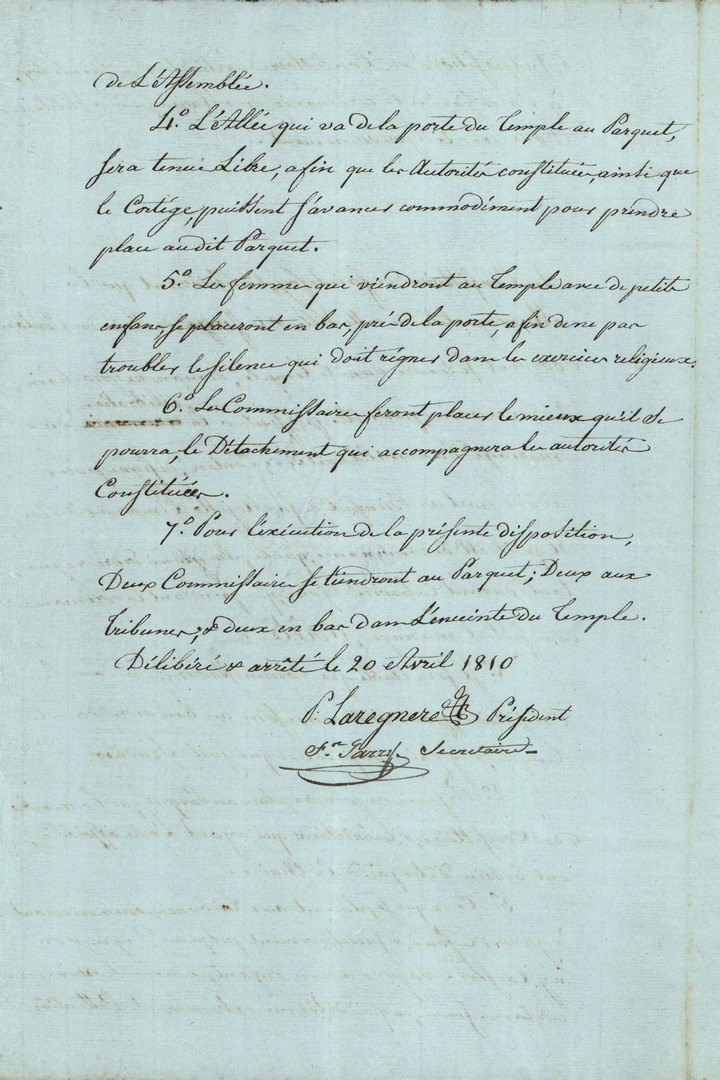 de L'Assemblée.
4.º L'Allée qui va de la porte du Temple au Parquet,
sera tenue Libre, afin que les Autorités constituées, ainsi que
le Cortége, puissent s'avancer commodément pour prendre
place audit Parquet.
5.º Les femmes qui viendront au Temple avec de petits
enfans, se placeront en bas, près de la porte, afin de ne pas
troubler le silence qui doit régner dans les exercices religieux.
6.º Les Commissaires feront placer le mieux qu'il se
pourra, le Détachement qui accompagnera les autorités
Constituées.
7.º Pour l'exécution de la présente disposition,
Deux Commissaires se tiendront au Parquet; Deux aux
Tribunes, & deux en bas dans L'enceinte du Temple.
Délibéré & arrêté le 20 Avril 1810
P. Laregnere Président
F.ᶜˢ Secretaire